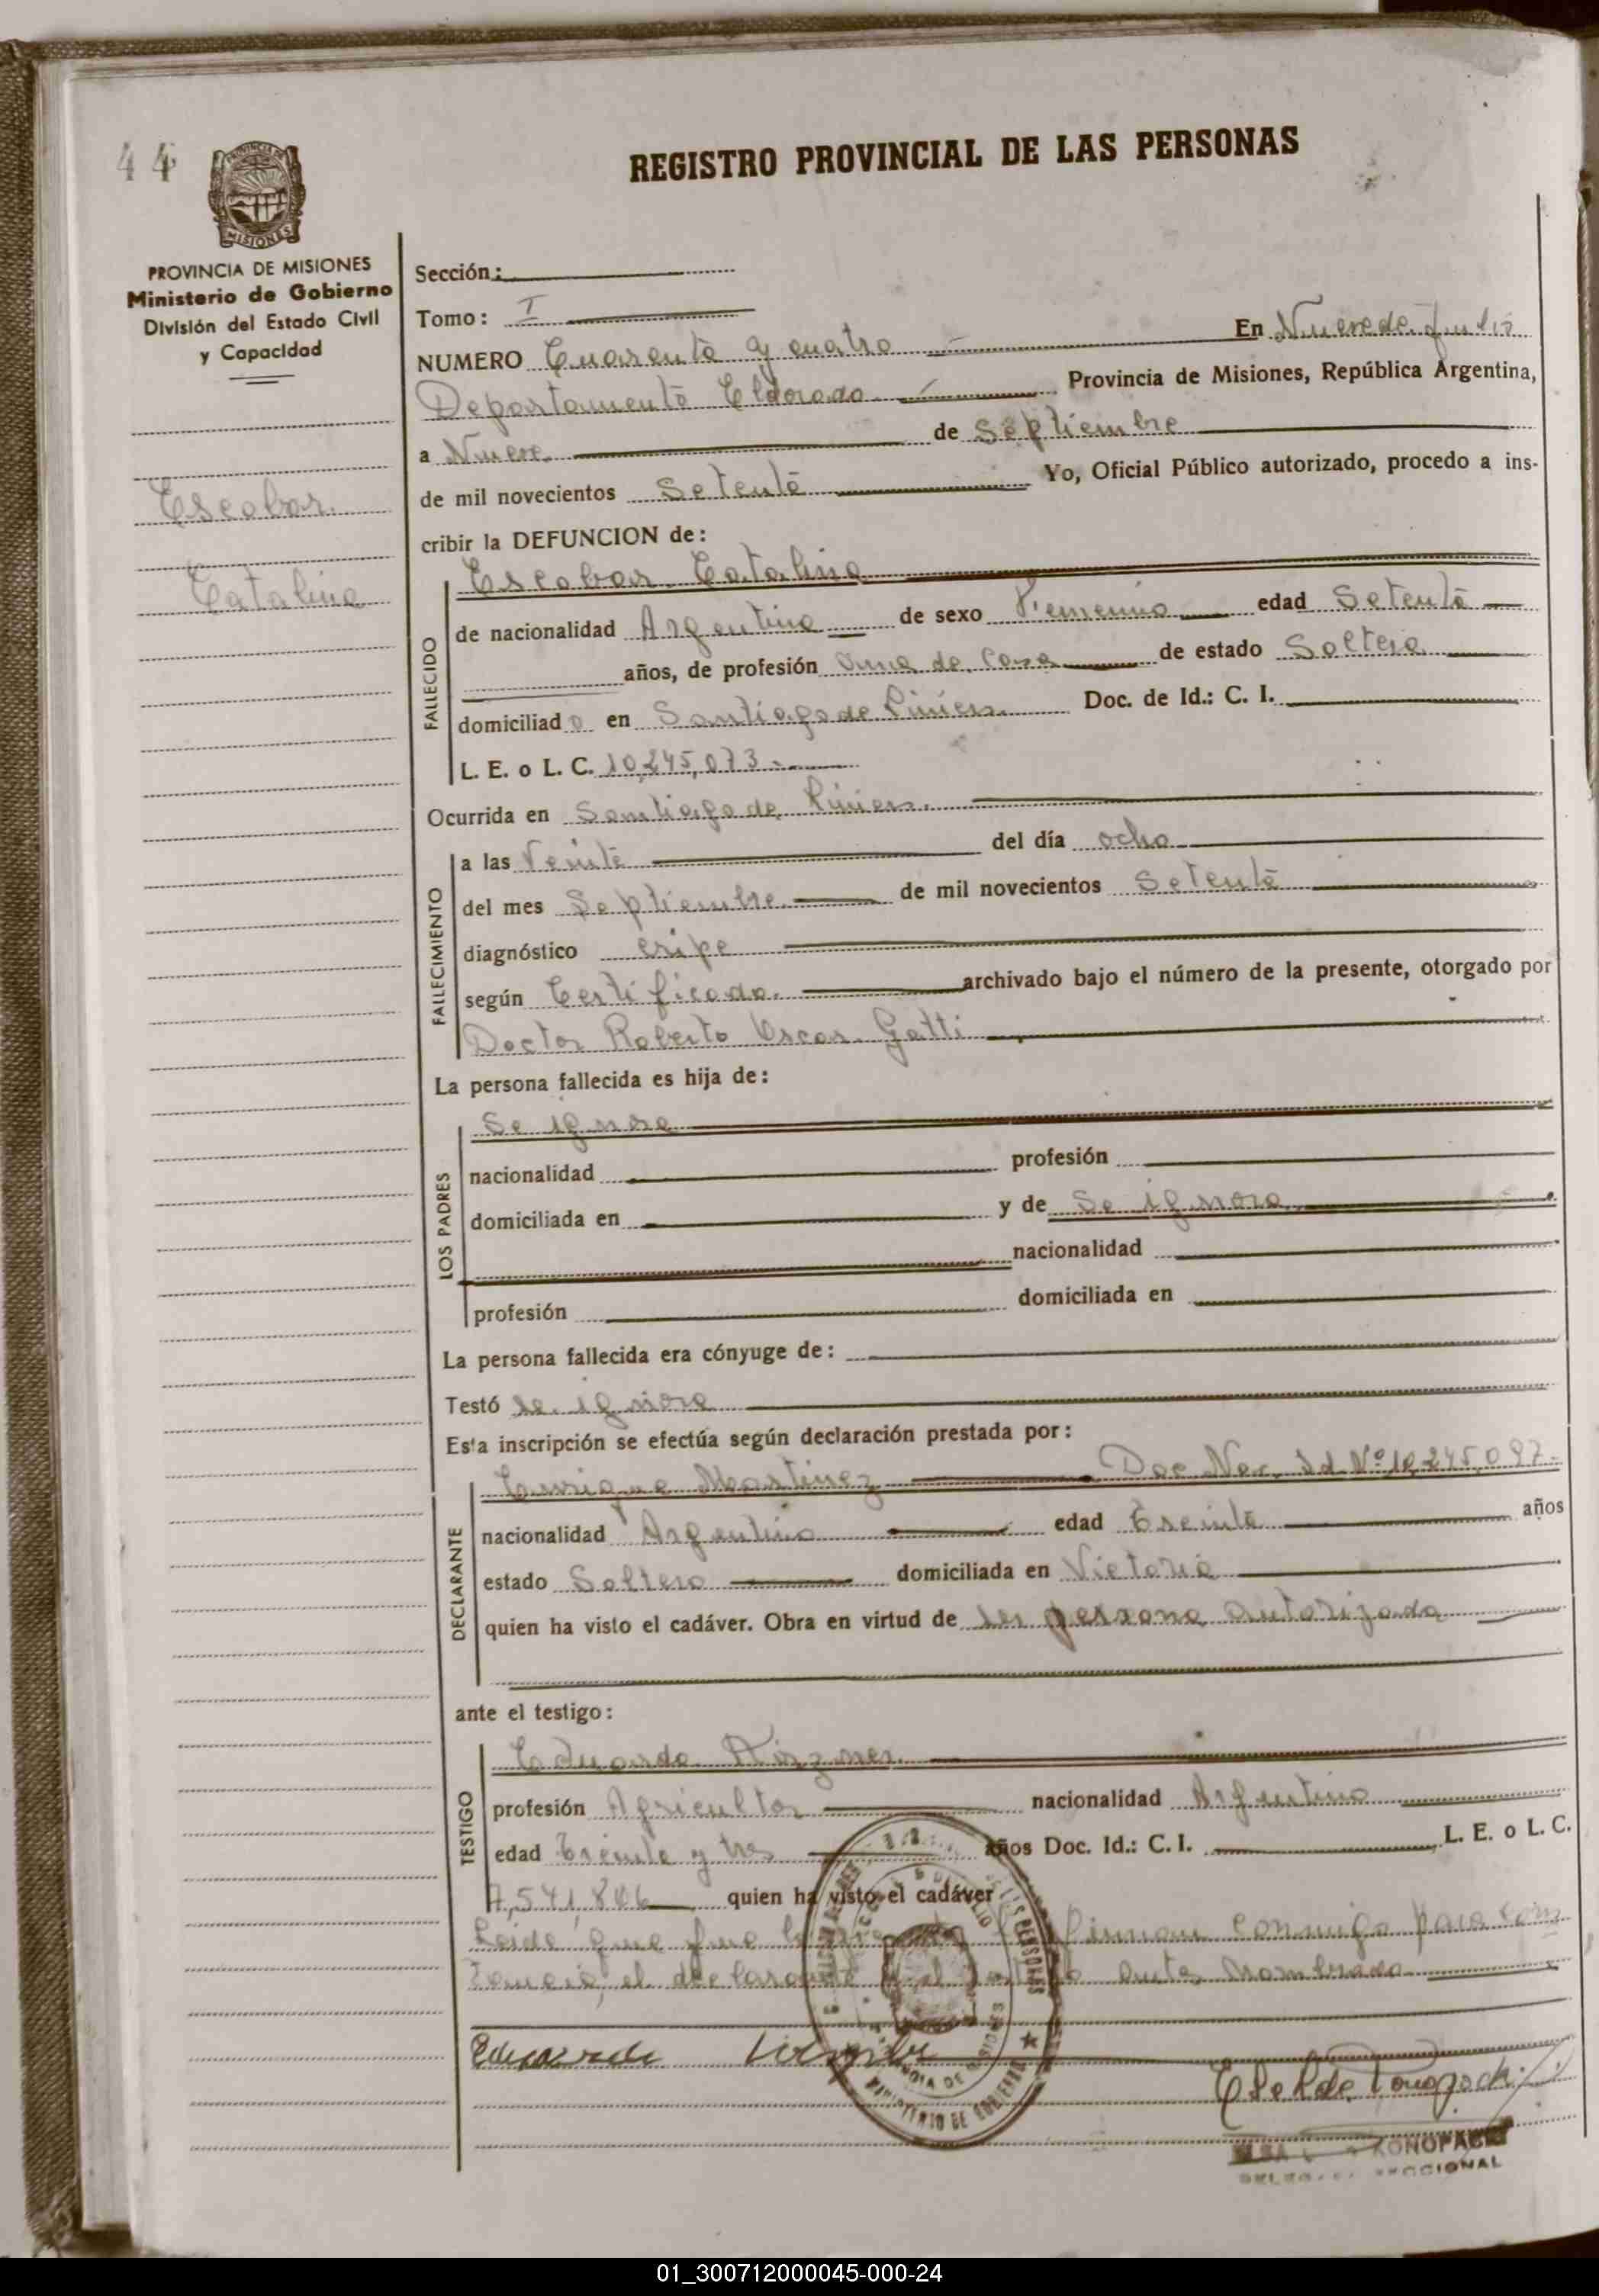 44
REGISTRO PROVINCIAL DE LAS PERSONAS
PROVINCIA DE MISIONES
MISIONES
PROVINCIA DE MISIONES
Ministerio de Gobierno
División del Estado Civil
y Capacidad
Escobar
Catalina
Sección:
Tomo: I
NUMERO Cuarenta y cuatro En Nueve de Julio
Departamento Eldorado Provincia de Misiones, República Argentina,
a Nueve de Septiembre
de mil novecientos Setenta Yo, Oficial Público autorizado, procedo a ins-
cribir la DEFUNCION de:
FALLECIDO
Escobar Catalina
de nacionalidad Argentina de sexo Femenino edad Setenta
años, de profesión ama de casa de estado Soltera
domiciliad a en Santiago de Liniers Doc. de Id.: C. I.
L. E. o L. C. 10,245,073.
Ocurrida en Santiago de Liniers.
FALLECIMIENTO
a las Veinte del día ocho
del mes Septiembre. de mil novecientos Setenta
diagnóstico
según Certificado. archivado bajo el número de la presente, otorgado por
Doctor Roberto Oscar Gatti
La persona fallecida es hija de:
LOS PADRES
Se ignora
nacionalidad profesión
domiciliada en y de Se ignora
nacionalidad
profesión domiciliada en
La persona fallecida era cónyuge de:
Testó se ignora
Esta inscripción se efectúa según declaración prestada por:
DECLARANTE
Enrique Martinez Doc Nac. Id Nº 10,245,097.
nacionalidad Argentino edad Treinta años
estado Soltero domiciliada en Victoria
quien ha visto el cadáver. Obra en virtud de ser persona autorizada
ante el testigo:
TESTIGO
Eduardo
profesión Agricultor nacionalidad Argentino
edad Treinta y tres años Doc. Id.: C. I. L. E. o L. C.
7,541,806 quien ha visto el cadáver
Leida que fue la firman conmigo para cons
tancia, el declarante y el testigo antes nombrado
Eduardo
MINISTERIO DE GOBIERNO